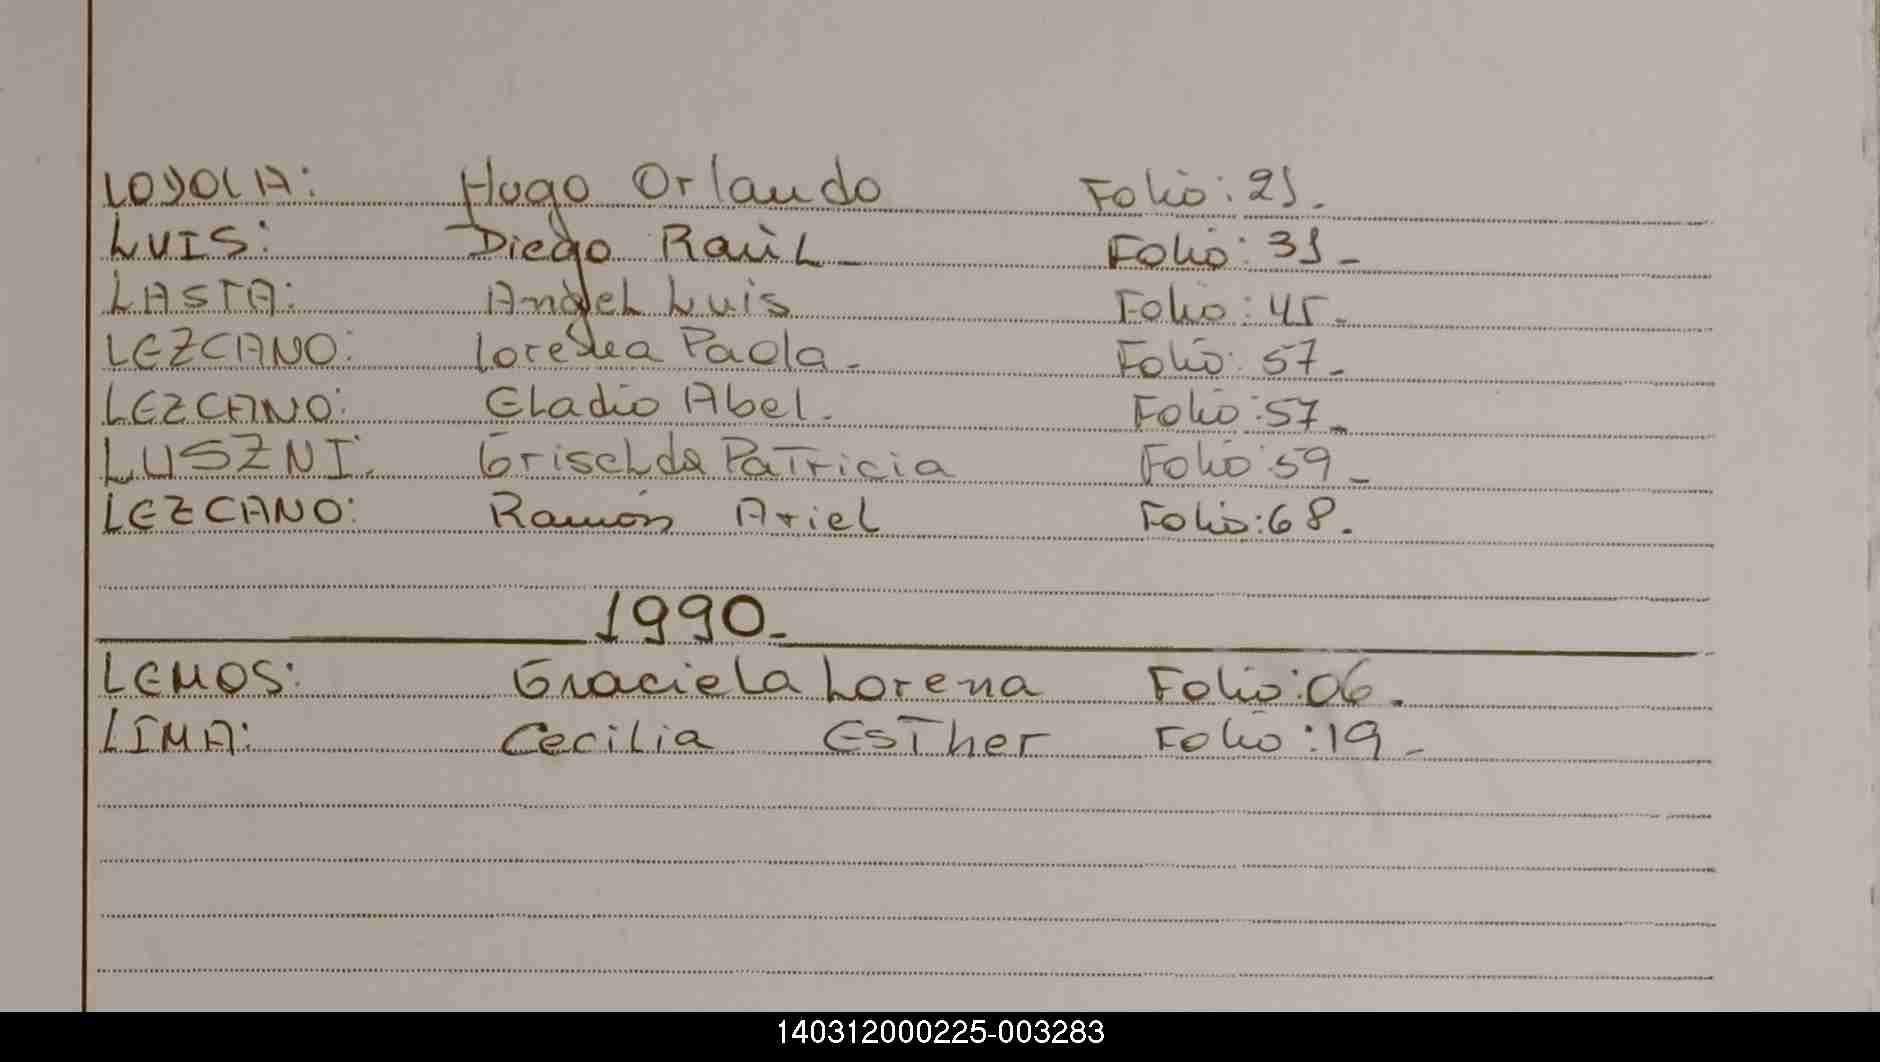 LOYOLA: Hugo Orlando Folio: 21.
LUIS: Diego Raúl Folio: 31-
LASTA: Angel Luis Folio: 45-
LEZCANO: Lorena Paola- Folio: 57-
LEZCANO: Eladio Abel. Folio: 57-
LUSZNI. Griselda Patricia Folio: 59-
LEZCANO: Ramón Ariel Folio: 68.
1990-
LEMOS: Graciela Lorena Folio: 06.
LIMA: Cecilia Esther Folio: 19-
140312000225-003283